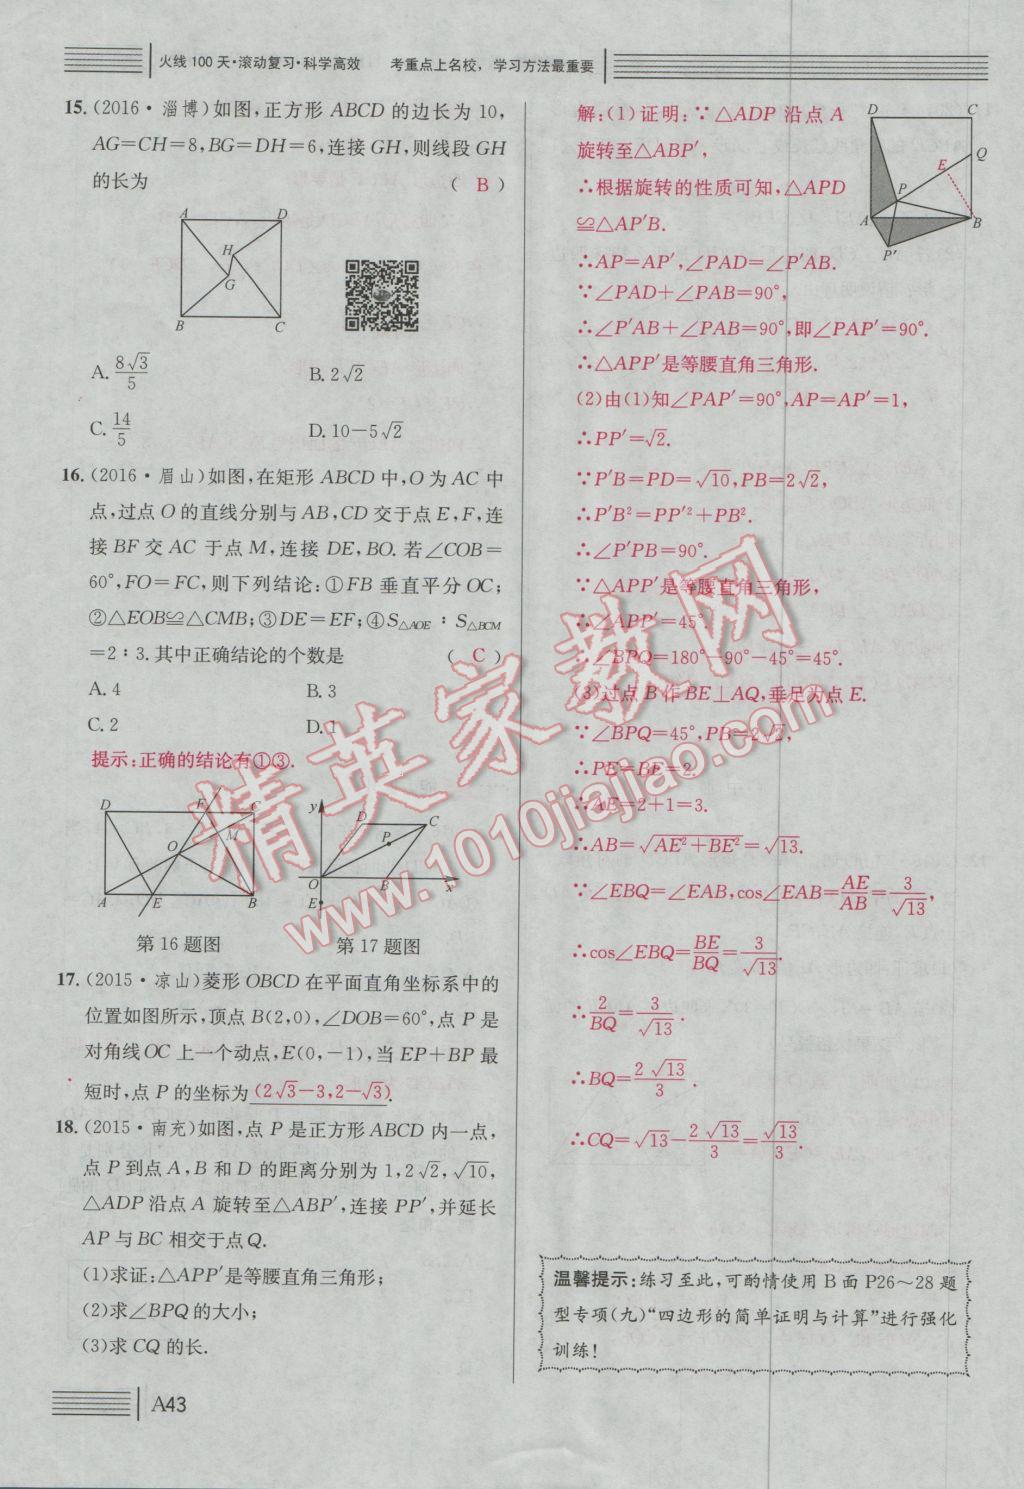 火线100天·滚动复习·科学高效 考重点上名校，学习方法最重要
15.(2016·淄博)如图,正方形ABCD的边长为10,
AG=CH=8,BG=DH=6,连接GH,则线段GH
的长为 ( B )
A D
H
G
B C
A. 8√3/5 B. 2√2
C. 14/5 D. 10-5√2
16.(2016·眉山)如图,在矩形ABCD中,O为AC中
点,过点O的直线分别与AB,CD交于点E,F,连
接BF交AC于点M,连接DE,BO.若∠COB=
60°,FO=FC,则下列结论:①FB垂直平分OC;
②△EOB≌△CMB;③DE=EF;④S△AOE∶S△BCM
=2∶3.其中正确结论的个数是 ( C )
A. 4 B. 3
C. 2 D. 1
提示:正确的结论有①③.
D F C
M
O
A E B
y
D C
P
O B x
E
第16题图 第17题图
17.(2015·凉山)菱形OBCD在平面直角坐标系中的
位置如图所示,顶点B(2,0),∠DOB=60°,点P是
对角线OC上一个动点,E(0,-1),当EP+BP最
短时,点P的坐标为(2√3-3,2-√3).
18.(2015·南充)如图,点P是正方形ABCD内一点,
点P到点A,B和D的距离分别为1,2√2,√10,
△ADP沿点A旋转至△ABP′,连接PP′,并延长
AP与BC相交于点Q.
(1)求证:△APP′是等腰直角三角形;
(2)求∠BPQ的大小;
(3)求CQ的长.
A43
解:(1)证明:∵△ADP沿点A
旋转至△ABP′,
∴根据旋转的性质可知,△APD
≌△AP′B.
∴AP=AP′,∠PAD=∠P′AB.
∵∠PAD+∠PAB=90°,
∴∠P′AB+∠PAB=90°,即∠PAP′=90°.
∴△APP′是等腰直角三角形.
D C
Q
E
P
A B
P′
(2)由(1)知∠PAP′=90°,AP=AP′=1,
∴PP′=√2.
∵P′B=PD=√10,PB=2√2,
∴P′B²=PP′²+PB².
∴∠P′PB=90°.
∵△APP′是等腰直角三角形,
∴∠APP′=45°.
∴∠BPQ=180°-90°-45°=45°.
(3)过点B作BE⊥AQ,垂足为点E.
∵∠BPQ=45°,PB=2√2,
∴PE=BE=2.
∴AE=2+1=3.
∴AB=√(AE²+BE²)=√13.
∵∠EBQ=∠EAB,cos∠EAB=AE/AB=3/√13,
∴cos∠EBQ=BE/BQ=3/√13.
∴2/BQ=3/√13.
∴BQ=2√13/3.
∴CQ=√13-2√13/3=√13/3.
温馨提示:练习至此,可酌情使用B面P26～28题
型专项(九)“四边形的简单证明与计算”进行强化
训练!
精英家教网
www.1010jiajiao.com